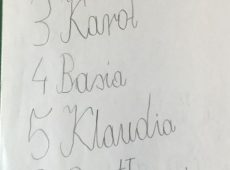 3 Karol
4 Basia
5 Klaudia